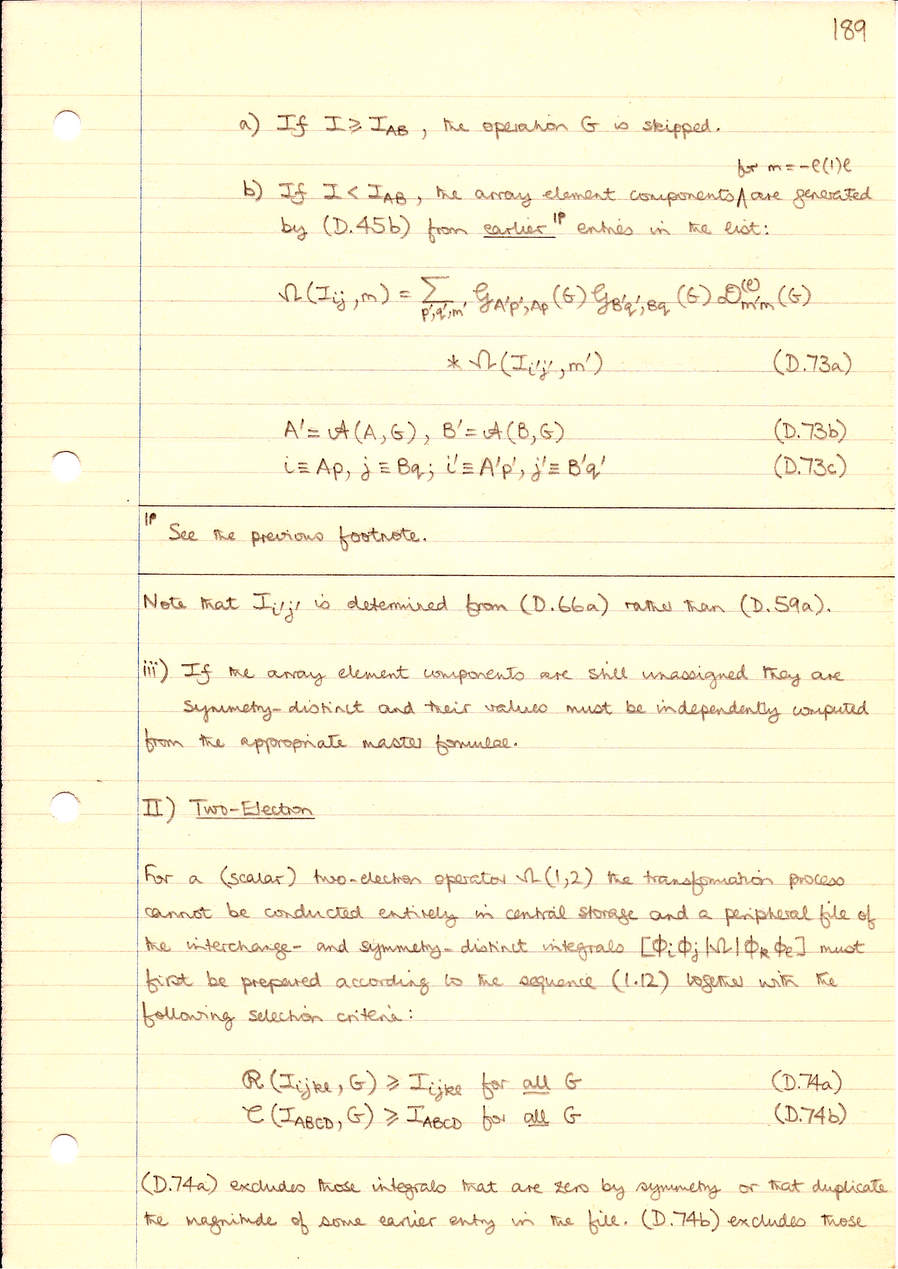 189
a) If I ⩾ I_AB , the operation G is skipped.
for m = -ℓ(1)ℓ
b) If I < I_AB , the array element components ∧ are generated
by (D.45b) from earlier ¶ entries in the list:
Ω(I_ij , m) = Σ_p',q',m' 𝒢_A'p',Ap (G) 𝒢_B'q',Bq (G) 𝒟^(ℓ)_m'm (G)
* Ω(I_i'j' , m') (D.73a)
A' ≡ 𝒜(A,G) , B' ≡ 𝒜(B,G) (D.73b)
i ≡ Ap, j ≡ Bq; i' ≡ A'p', j' ≡ B'q' (D.73c)
¶ See the previous footnote.
Note that I_i'j' is determined from (D.66a) rather than (D.59a).
iii) If the array element components are still unassigned they are
symmetry-distinct and their values must be independently computed
from the appropriate master formulae.
II) Two-Electron
For a (scalar) two-electron operator Ω(1,2) the transformation process
cannot be conducted entirely in central storage and a peripheral file of
the interchange- and symmetry-distinct integrals [ϕ_i ϕ_j |Ω| ϕ_k ϕ_ℓ] must
first be prepared according to the sequence (1.12) together with the
following selection criteria:
ℛ(I_ijkℓ , G) ⩾ I_ijkℓ for all G (D.74a)
𝒞(I_ABCD , G) ⩾ I_ABCD for all G (D.74b)
(D.74a) excludes those integrals that are zero by symmetry or that duplicate
the magnitude of some earlier entry in the file. (D.74b) excludes those